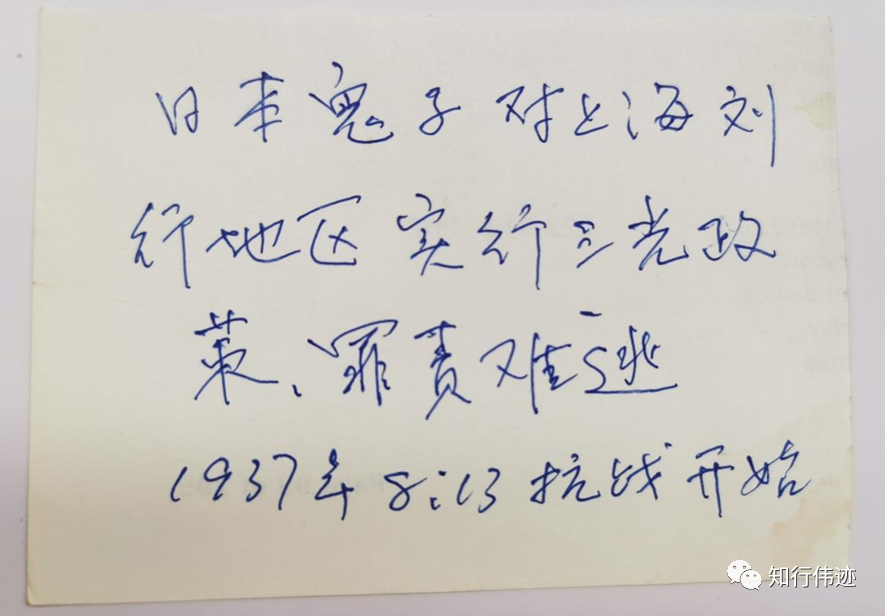 日本鬼子对上海刘
行地区实行三光政
策、罪责难逃
1937年8:13抗战开始
知行伟迹